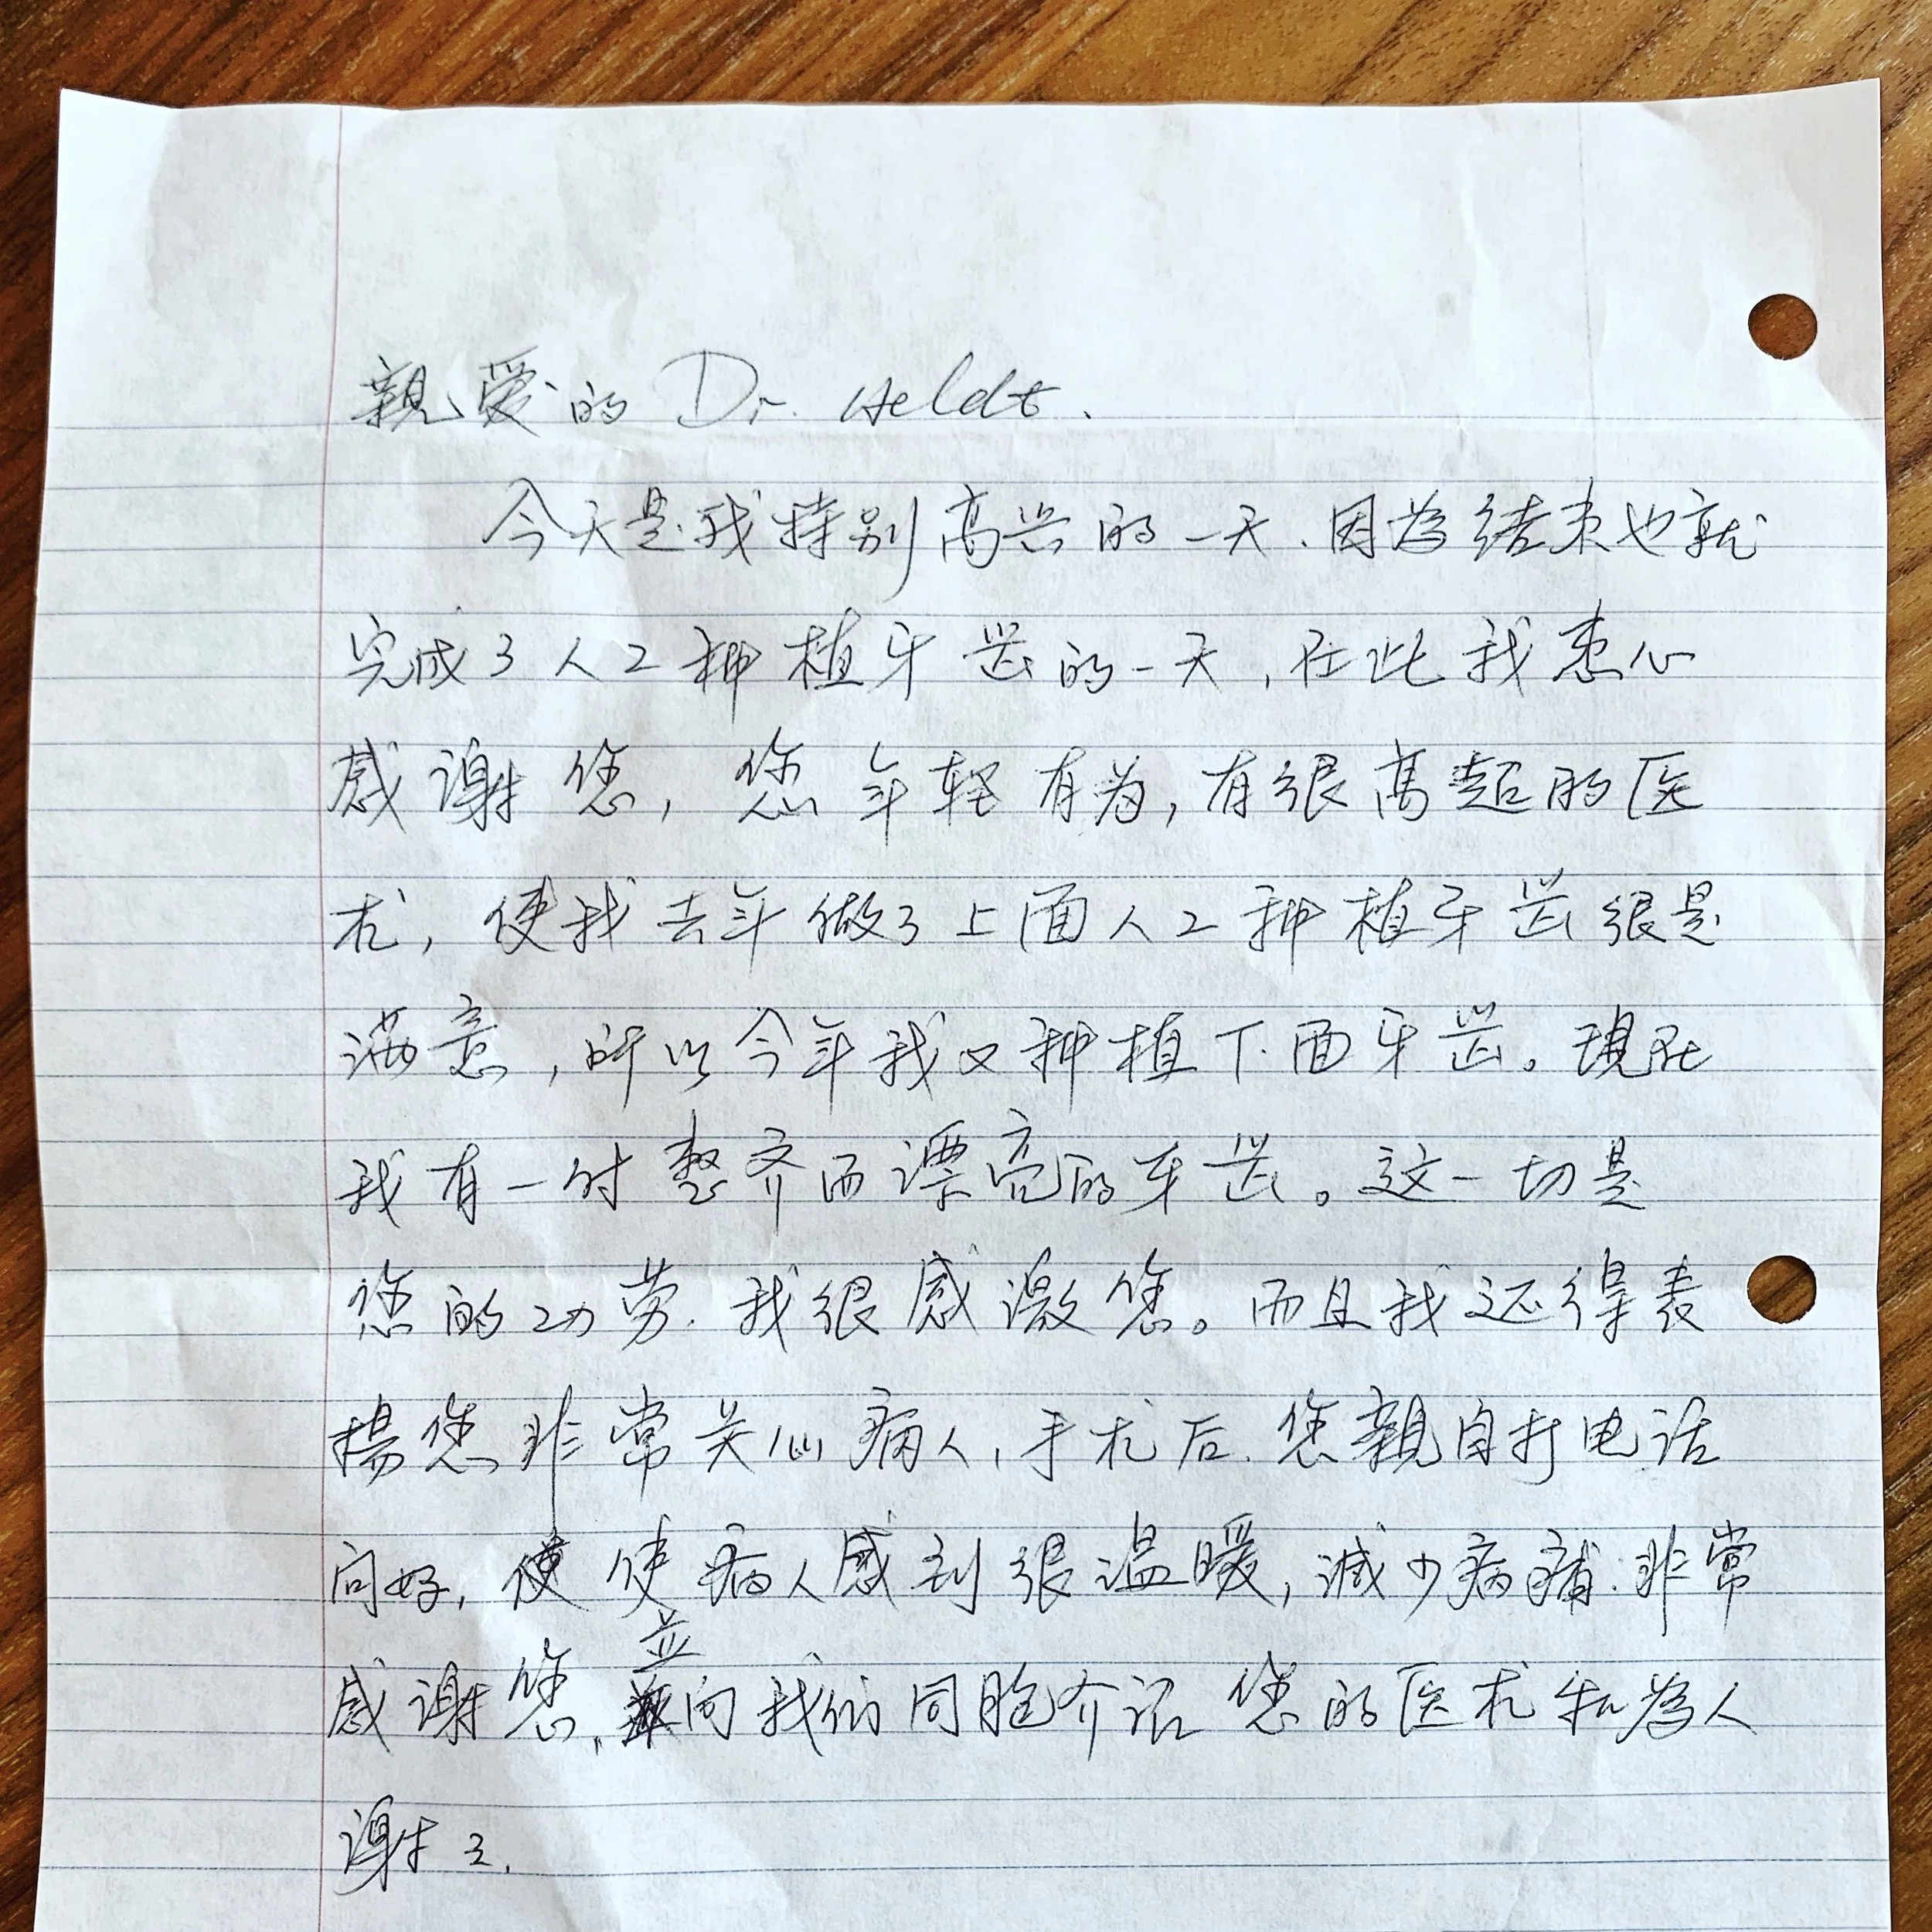 親爱的 Dr. Heldt.
今天是我特别高兴的一天.因為结束也就
完成了人工种植牙齿的一天,在此我衷心
感谢您,您年轻有为,有很高超的医
术,使我去年做了上面人工种植牙齿很是
满意,所以今年我又种植下面牙齿。現在
我有一付整齐而漂亮的牙齿。这一切是
您的功劳.我很感激您。而且我还得表
揚您非常关心病人,手术后.您親自打电话
问好,使病人感到很温暖,减少病痛.非常
感谢您,並向我们同胞介绍您的医术和為人
谢々.